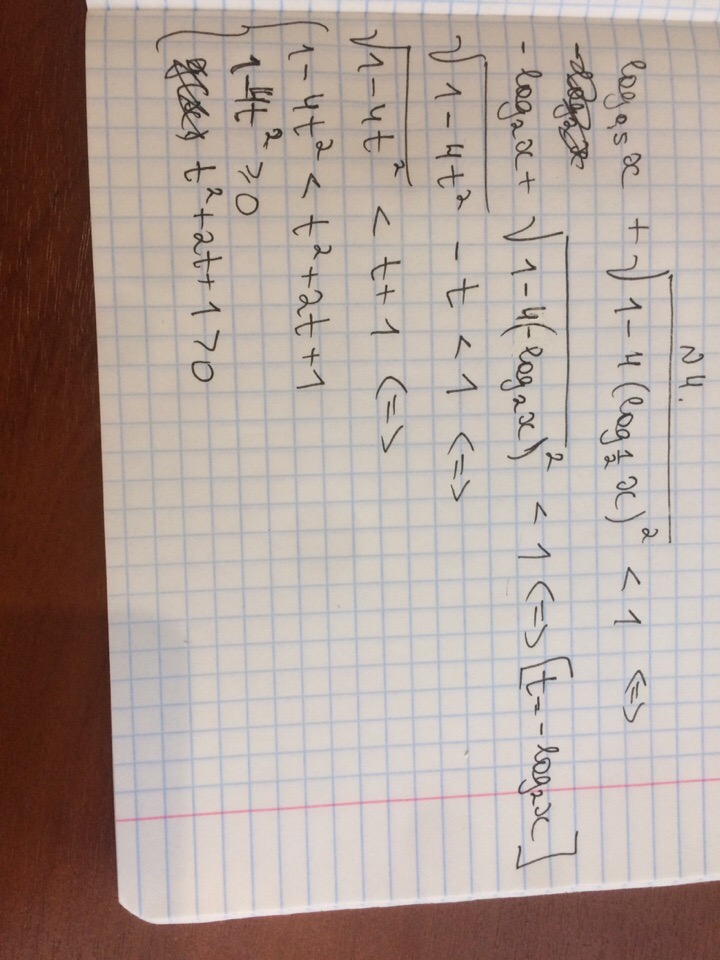 № 4.
log₀,₅x + √(1 - 4(log_{1/2} x)²) < 1 <=>
- log₂x + √(1 - 4(-log₂x)²) < 1 <=> [t = -log₂x]
√(1 - 4t²) - t < 1 <=>
√(1 - 4t²) < t + 1 <=>
1 - 4t² < t² + 2t + 1
1 - 4t² ≥ 0
t² + 2t + 1 > 0